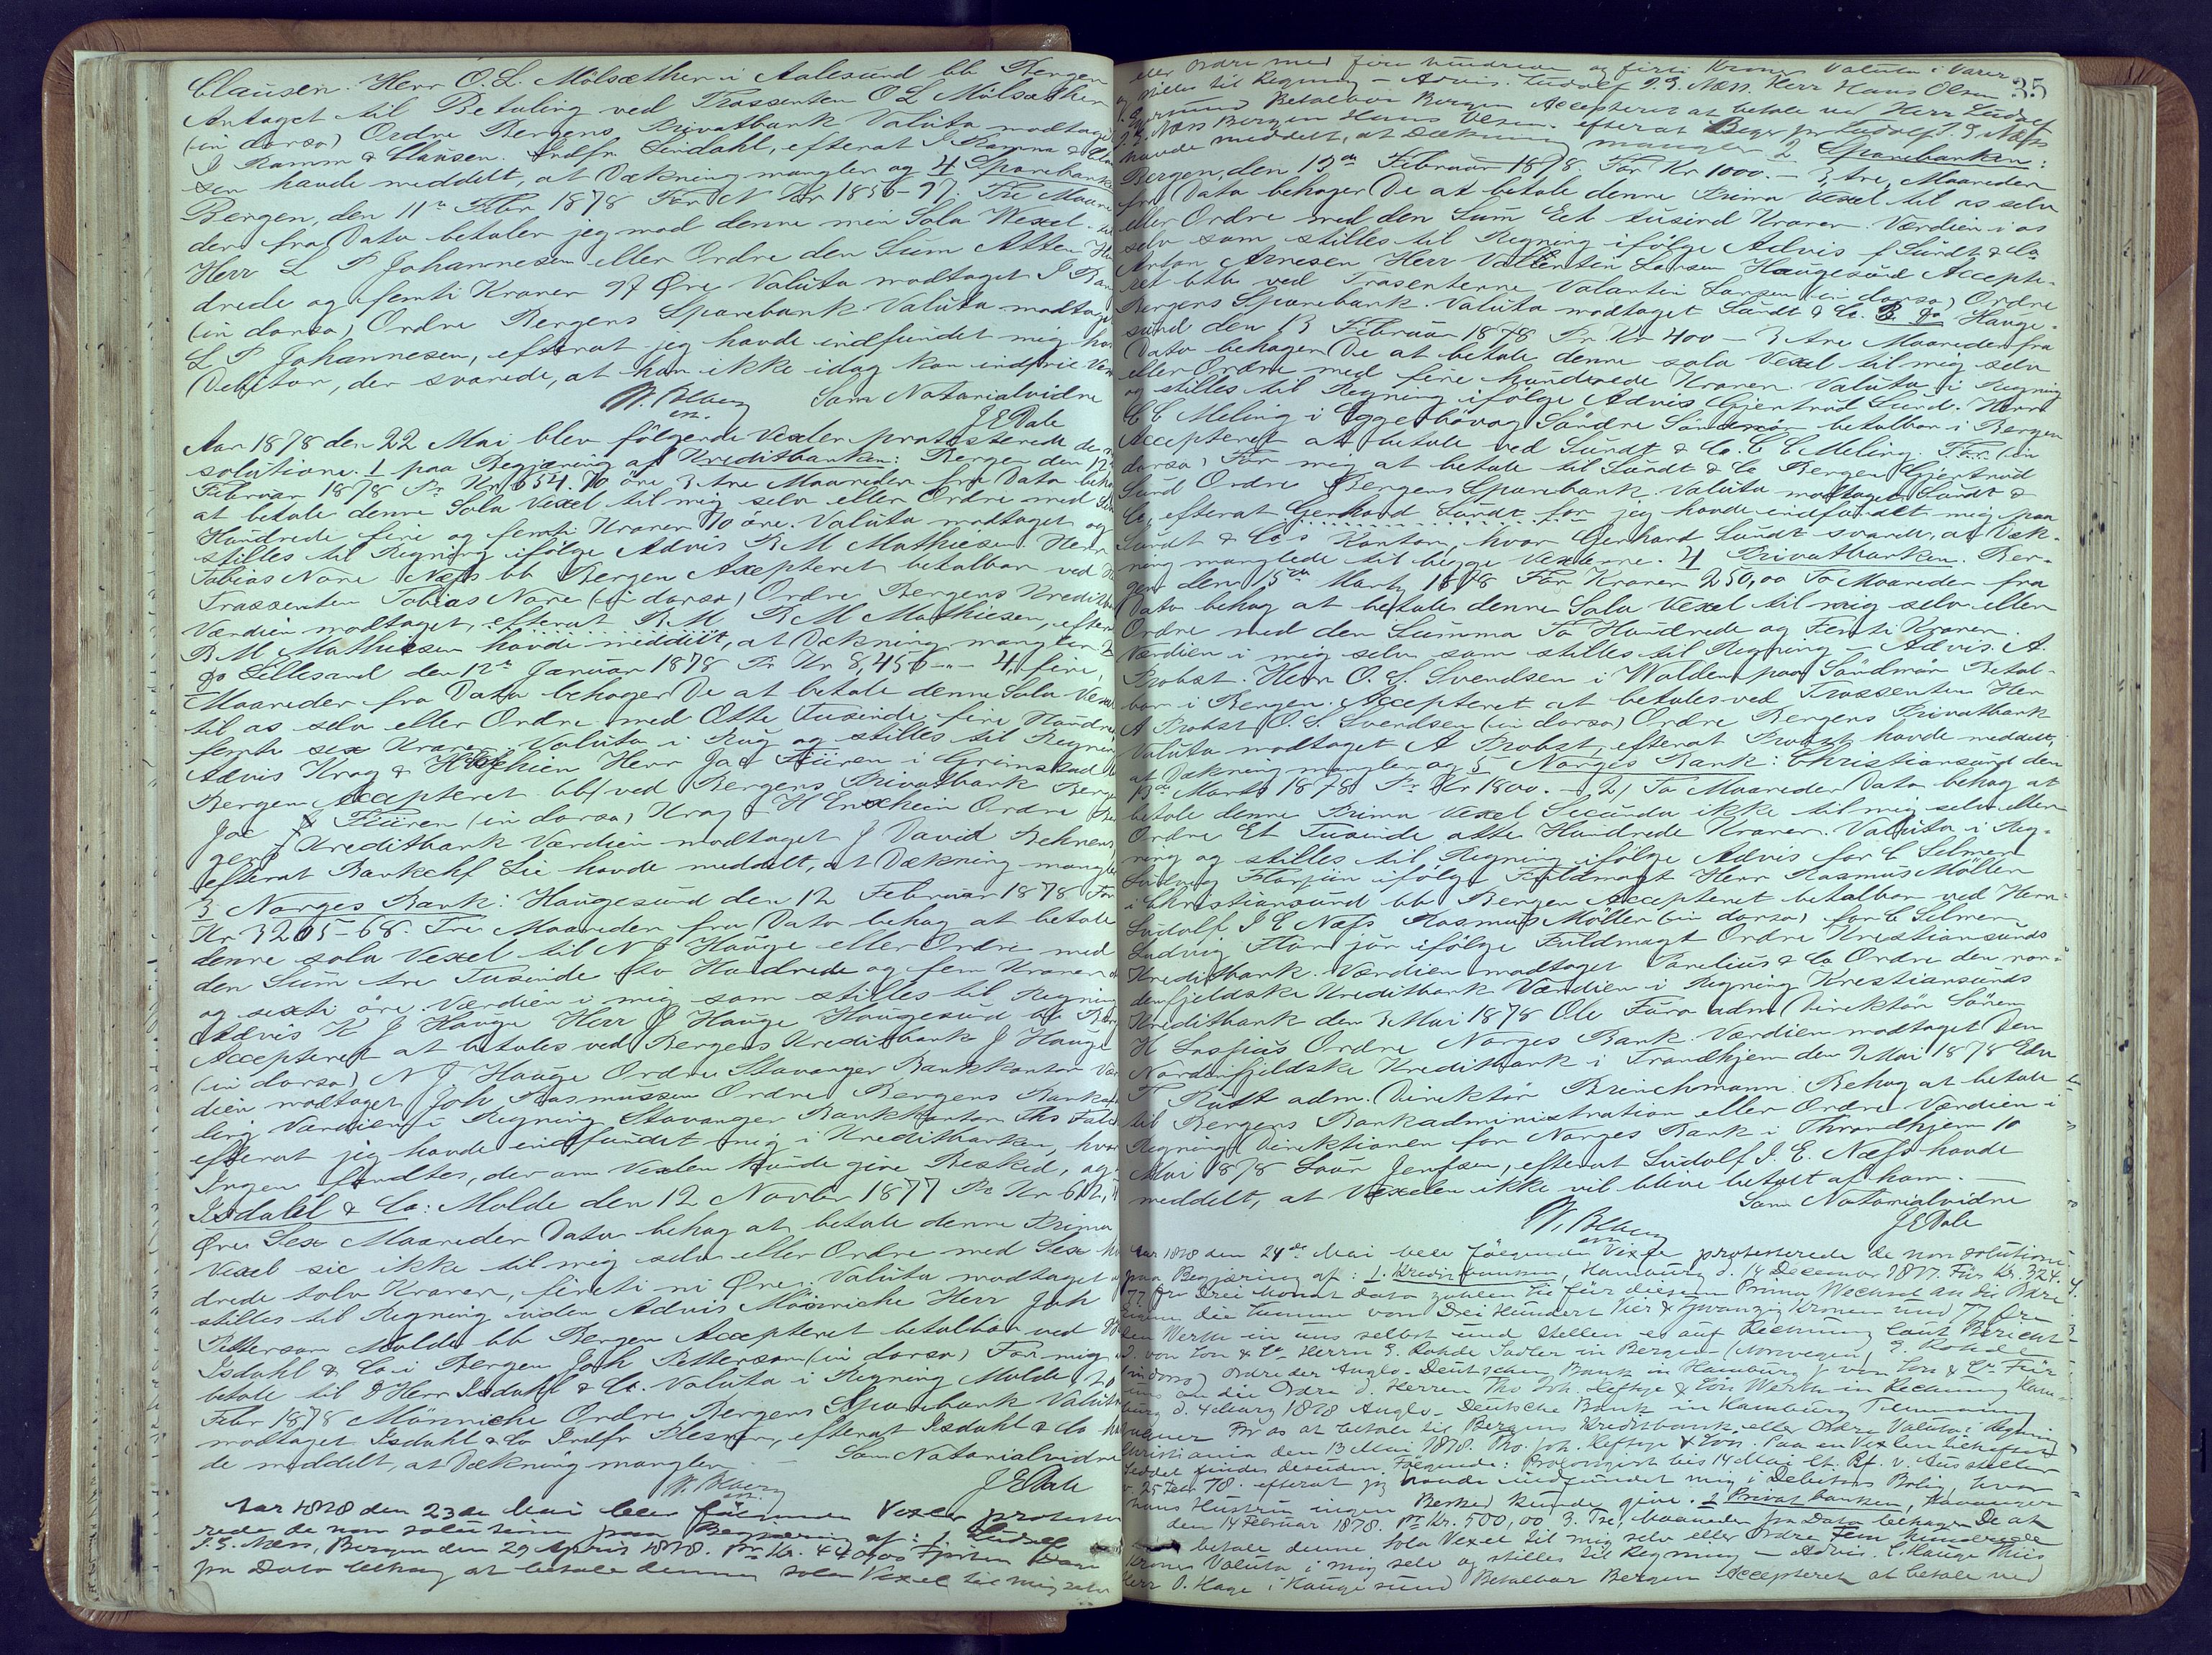 Clausen. Herr O. L. Mölsæther i Aalesund bb Bergen
Antaget til Betaling ved Trassenten O L Mölsæther
(in dorso) Ordre Bergens Privatbank Valuta modtaget
J Ramm & Clausen. Indfr. Lindahl, efterat J Ramm & Clau
sen havde meddelt, at Dækning mangler og 4 Sparebanken
Bergen, den 11te Febr 1878 For N Kr 1850-97. Tre Maane
der fra Dato betaler jeg mod denne min Sola Wexel
Herr L P Johannesen eller Ordre den Sum Atten Hun
drede og femti Kroner 97 Öre Valuta modtaget J Ram
(in dorso) Ordre Bergens Sparebank. Valuta modtaget
L P Johannesen, efterat jeg havde indfundet mig hos
Debitor, der svarede, at han ikke idag kan indfrie Vex
Som Notarialvidne
J E Dale
Aar 1878 den 22 Mai blev fölgende Vexler protesterede de n
solutione. 1 paa Begjæring af Kreditbanken: Bergen den 12te
Februar 1878 Pr Kr 654.10 öre. 3 tre Maaneder fra Dato beha
at betale denne Sola Vexel til mig selv eller Ordre med Sex
Hundrede fire og femti Kroner 10 öre. Valuta modtaget og
stilles til Regning ifölge Advis B M Mathiesen. Herr
Tobias Nore Næss bb Bergen Axepteret betalbar ved
Trassenten Tobias Nore (in dorso) Ordre Bergens Kreditb
Værdien modtaget, efterat B. M. B M Mathiesen, efter
B M Mathiesen havde meddelt, at Dækning mangler 2
do Lillesand den 12te Januar 1878 Pr Kr 8,456 -„- 4, fire,
Maaneder fra Dato behager De at betale denne Sola Vexel
til os selv eller Ordre med Otte Tusinde fire Hundre
femti sex Kroner. Valuta i Rug og stilles til Regning
Advis Krog & Herr Jac Fiüren i Grimstad
Bergen Accepteret bb ved Bergens Privatbank Berge
Jac J Fiüren (in dorso) Krog & H Ordre Ber
gens Kreditbank Værdien modtaget J David Behrens
efterat Bankchf Lie havde meddelt, at Dækning mangler
3 Norges Bank: Haugesund den 12 Februar 1878 For
Kr 3205-68. Tre Maaneder fra Dato behag at betale
denne sola Vexel til N J Hauge eller Ordre med
den Sum tre Tusinde to Hundrede og fem Kroner
og sexti öre. Værdien i mig som stilles til Regning
Advis K J Hauge Herr J Hauge Haugesund bb Berg
Accepteret at betales ved Bergens Kreditbank J Hauge
(in dorso) N J Hauge Ordre Stavanger Bankkontor Vær
dien modtaget Joh Rasmussen Ordre Bergens Bankaf
ling Værdien i Regning Stavanger Bankkontor Ths Falck
efterat jeg havde indfundet mig i Kreditbanken, hvor
Ingen fandtes, der om Vexelen kunde give Besked, og
Isdahl & Co: Molde den 12 Novbr 1877 Pr Kr 612,
Öre Sex Maaneder Dato behag at betale denne Prima
Vexel sic ikke til mig selv eller Ordre med Sex hun
drede tolv Kroner, firti ni Öre. Valuta modtaget og
stilles til Regning uden Advis Mönniche Herr Joh
Petterson Molde bb Bergen Accepteret betalbar ved
Isdahl & Co i Bergen Joh Petterson (in dorso) For mig
betale til D Herr Isdahl & Co. Valuta i Regning Molde 20
Febr 1878 Mönniche Ordre Bergens Sparebank Valuta
modtaget Isdahl & Co Indfr Klesner, efterat Isdahl & Co hav
de meddelt, at Dækning mangler
Som Notarialvidne
J E Dale
Aar 1878 den 23de Mai blev fölgende Vexler proteste
rede de non solutione paa Begjæring af: 1. Ludolf
J. E. Næss, Bergen den 29 April 1878. Pr Kr. 440,00 Fjorten Dage
fra Dato behag at betale denne sola Vexel til mig selv
35
eller Ordre med fire hundrede og firti Kroner Valuta i Varer
og stilles til Regning - Advis. Ludolf J. E. Næss. Herr Hans Olsen
Betalbar Bergen Accepteret at betale ved Herr Ludolf
J. E. Næss Bergen Hans Olsen. efterat Ludolf J. E. Næss
havde meddelt, at Dækning mangler 2 Sparebanken:
Bergen, den 12te Februar 1878. For Kr 1000.- 3, tre, Maaneder
fra Dato behager De at betale denne Prima Vexel til os selv
eller Ordre med den Sum Eet tusind Kroner. Værdien i os
selv som stilles til Regning ifölge Advis f Sundt & Co
Anton Arnesen Herr Vallentin Larsen Haugesund Accepte-
ret bb ved Trasenterne Valantin Larsen (in dorso) Ordre
Bergens Sparebank. Valuta modtaget Sundt & Co. 3. do Hauge-
sund den 13 Februar 1878 Pr Kr 400 - 3 tre Maaneder fra
Dato behager De at betale denne sola Vexel til mig selv
eller Ordre med fire hundrede Kroner Valuta i Regning
og stilles til Regning ifölge Advis Gjertrud Sund. Herr
C C Meling i Eggesbövaag Söndre Söndmör betalbar i Bergen
Accepteret at betale ved Sundt & Co. C C Meling. (in
dorso) For mig at betale til Sundt & Co Bergen Gjertrud
Sund Ordre Bergens Sparebank. Valuta modtaget Sundt &
Co, efterat Gerhard Sundt for jeg havde indfundet mig paa
Sundt & Co's Kontor, hvor Gerhard Sundt svarede, at Dæk-
ning manglede til begge Vexlerne. 4 Privatbanken. Ber-
gen den 15de Marts 1878 For Kroner 250,00 To Maaneder fra
Dato behag at betale denne Sola Vexel til mig selv eller
Ordre med den Summa To Hundrede og Femti Kroner.
Værdien i mig selv som stilles til Regning - Advis. A.
Probst. Herr O. S. Svendsen i Wolden paa Söndmör Betal-
bar i Bergen. Accepteret at betales ved Trassenten Herr
A Probst O. S. Svendsen (in dorso) Ordre Bergens Privatbank
Valuta modtaget A Probst, efterat Probst havde meddelt,
at Dækning mangler og 5 Norges Bank: Christiansund den
13de Marts 1878 Pr Kr 1800. - 2, To Maaneder Dato behag at
betale denne Prima Vexel Secunda ikke til mig selv eller
Ordre Et Tusinde atte Hundrede Kroner. Valuta i Reg-
ning og stilles til Regning ifölge Advis for C Selmer
Ludvig Flor jun ifölge Fuldmagt Herr Rasmus Möller
i Christiansund bb Bergen Accepteret betalbar ved Herr
Ludolf J E Næss Rasmus Möller (in dorso) for C Selmer
Ludvig Flor jùr ifölge Fuldmagt Ordre Kristiansunds
Kreditbank. Værdien modtaget Parelius & Co Ordre den nor-
denfjeldske Kreditbank Værdien i Regning Kristiansunds
Kreditbank den 3 Mai 1878 Ole Fúro adm Direktör Sören
H Lossius Ordre Norges Bank. Værdien modtaget Den
Nordenfjeldske Kreditbank i Trondhjem den 7 Mai 1878 Edv
F Rust adm. Direktör Brinchmann Behag at betale
til Bergens Bankadministration eller Ordre Værdien i
Regning Direktionen for Norges Bank i Throndhjem 10
Mai 1878 Laur Jenssen, efterat Ludolf J. E. Næss havde
meddelt, at Vexelen ikke vil blive betalt af ham.
Som Notarialvidne
J E Dale
Aar 1878 den 24de Mai blev fölgende Vexle protesterede de non solutione
paa Begjæring af: 1. Kreditbanken, Hamburg d. 14 December 1877. Für Kr. 324.
77 Öre Drei Monat dato zahlen Sie für diesen Prima Wechsel an die Ordre
die Summe von Drei Hundert vier & zwanzig Kronen und 77 Öre
den Werth in uns selbst und stellen es auf Rechnung laut Bericht
J. von Son & Co Herrn G. Rohde Sadler in Bergen (Norwegen) G. Rohde
(in dorso) Ordre der Anglo-Deutschen Bank in Hamburg J von Son & Co Für
uns an die Ordre d. Herren Tho. Joh. Heftye & Sön Werth in Rechnung Ham-
burg d. 4 März 1878 Anglo-Deutsche Bank in Hamburg
For os at betale til Bergens Kreditbank eller Ordre Valuta i Regning
Christiania den 13 Mai 1878. Tho. Joh. Heftye & Sön. Paa en Vexlen tilheftet
Seddel findes desuden Fölgende: Prolongirt bis 14 Mai lt. Bf. v. Aussteller
v. 25 Febr 78. efterat jeg havde indfundet mig i Debitors Bolig, hvor
hans Hustru ingen Besked kunde give. 2 Privatbanken,
den 14 Februar 1878. pr Kr. 500,00 3. Tre, Maaneder fra Dato behager De at
betale denne Sola Vexel til mig selv eller Ordre Fem hundrede
Kroner Valuta i mig selv og stilles til Regning - Advis. C. Hauge Thiis
Herr O. Hage i Haugesund Betalbar Bergen Accepteret at betale ved